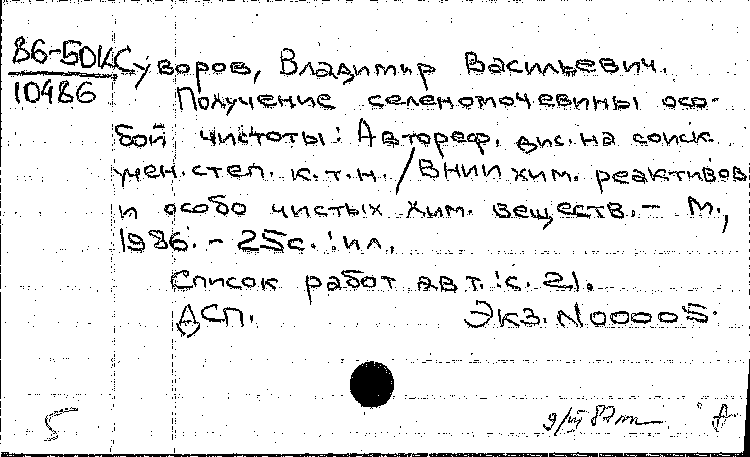 86-50К Суворов, Владимир Васильевич.
10486
Получение селеномочевины осо-
бой чистоты: Автореф. дис. на соиск.
учен. степ. к.т.н. / ВНИИ хим. реактивов
и особо чистых хим. веществ. - М.,
1986. - 25с.: ил.
Список работ авт.: с. 21.
ДСП. Экз. N00005.
5